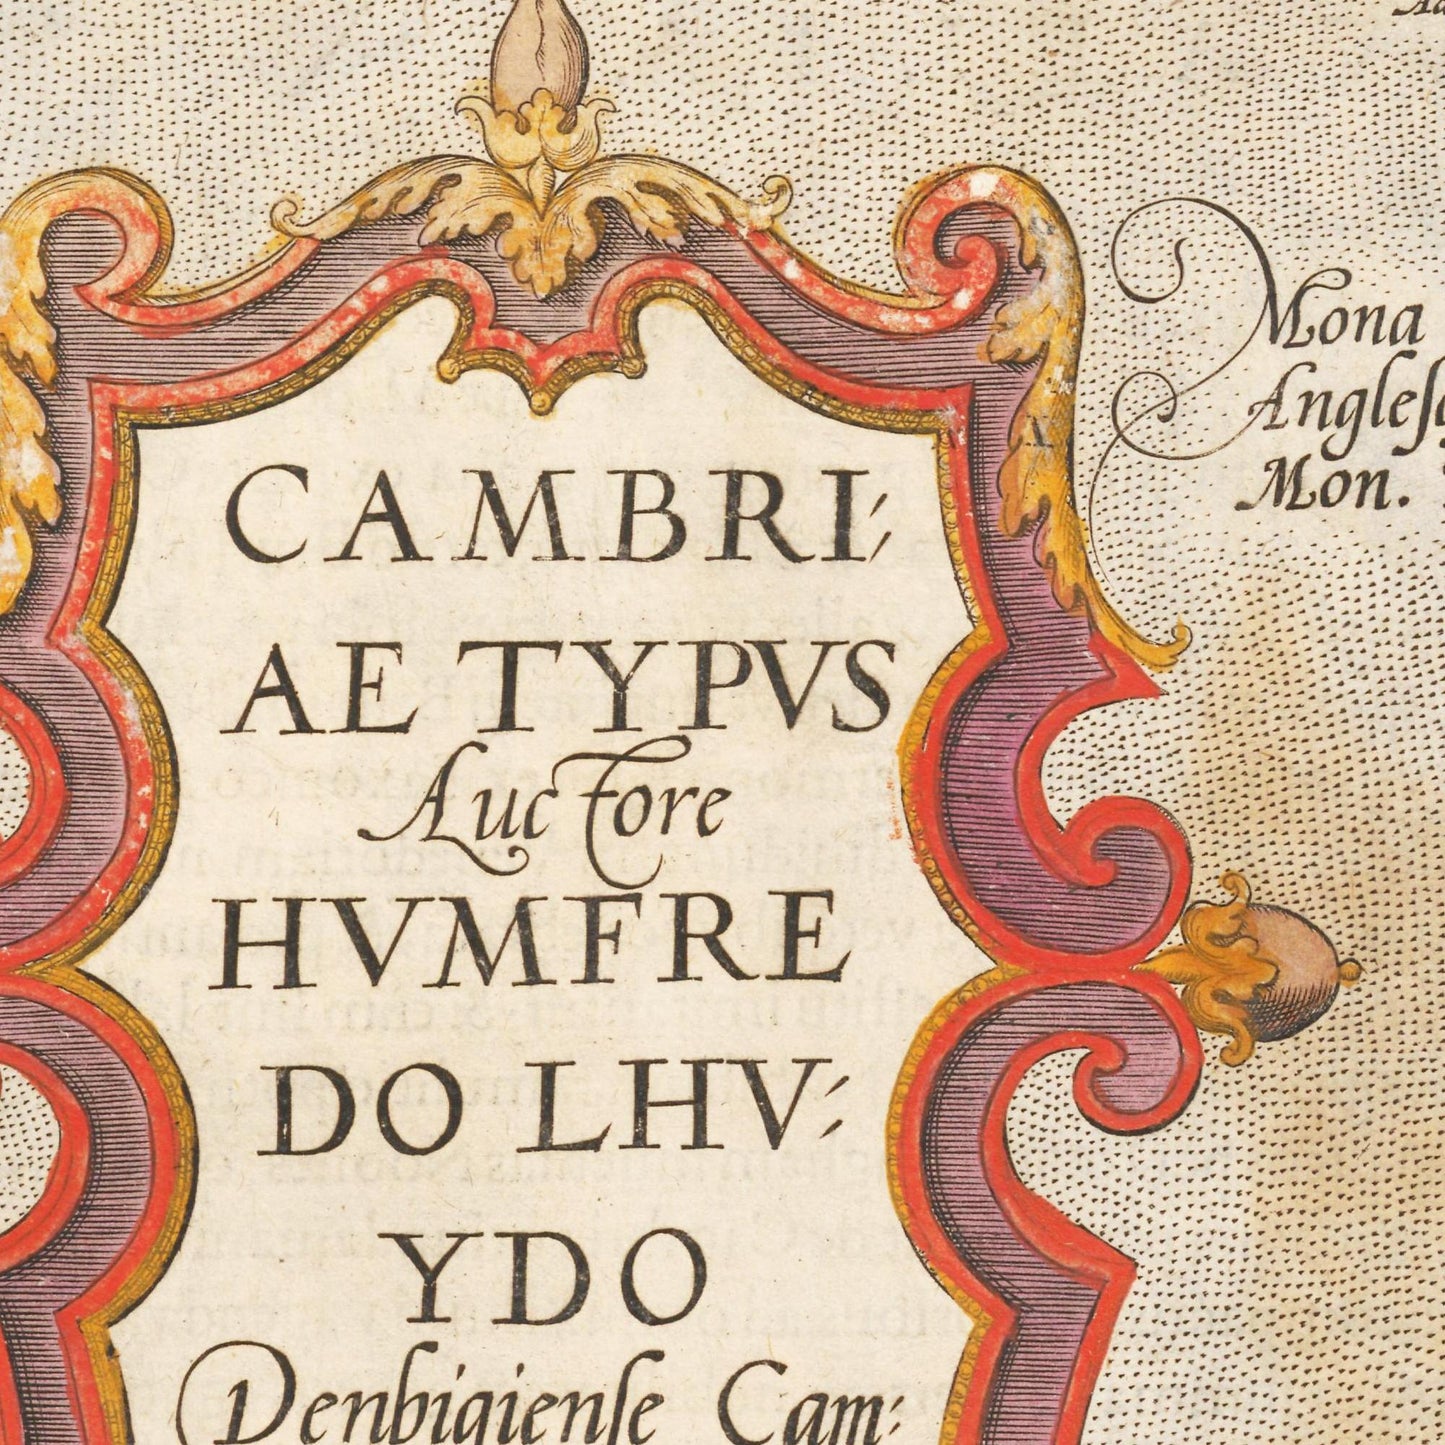 CAMBRI-
AE TYPVS
Auctore
HVMFRE
DO LHV-
YDO
Denbigienſe Cam-
Mona
Mon.